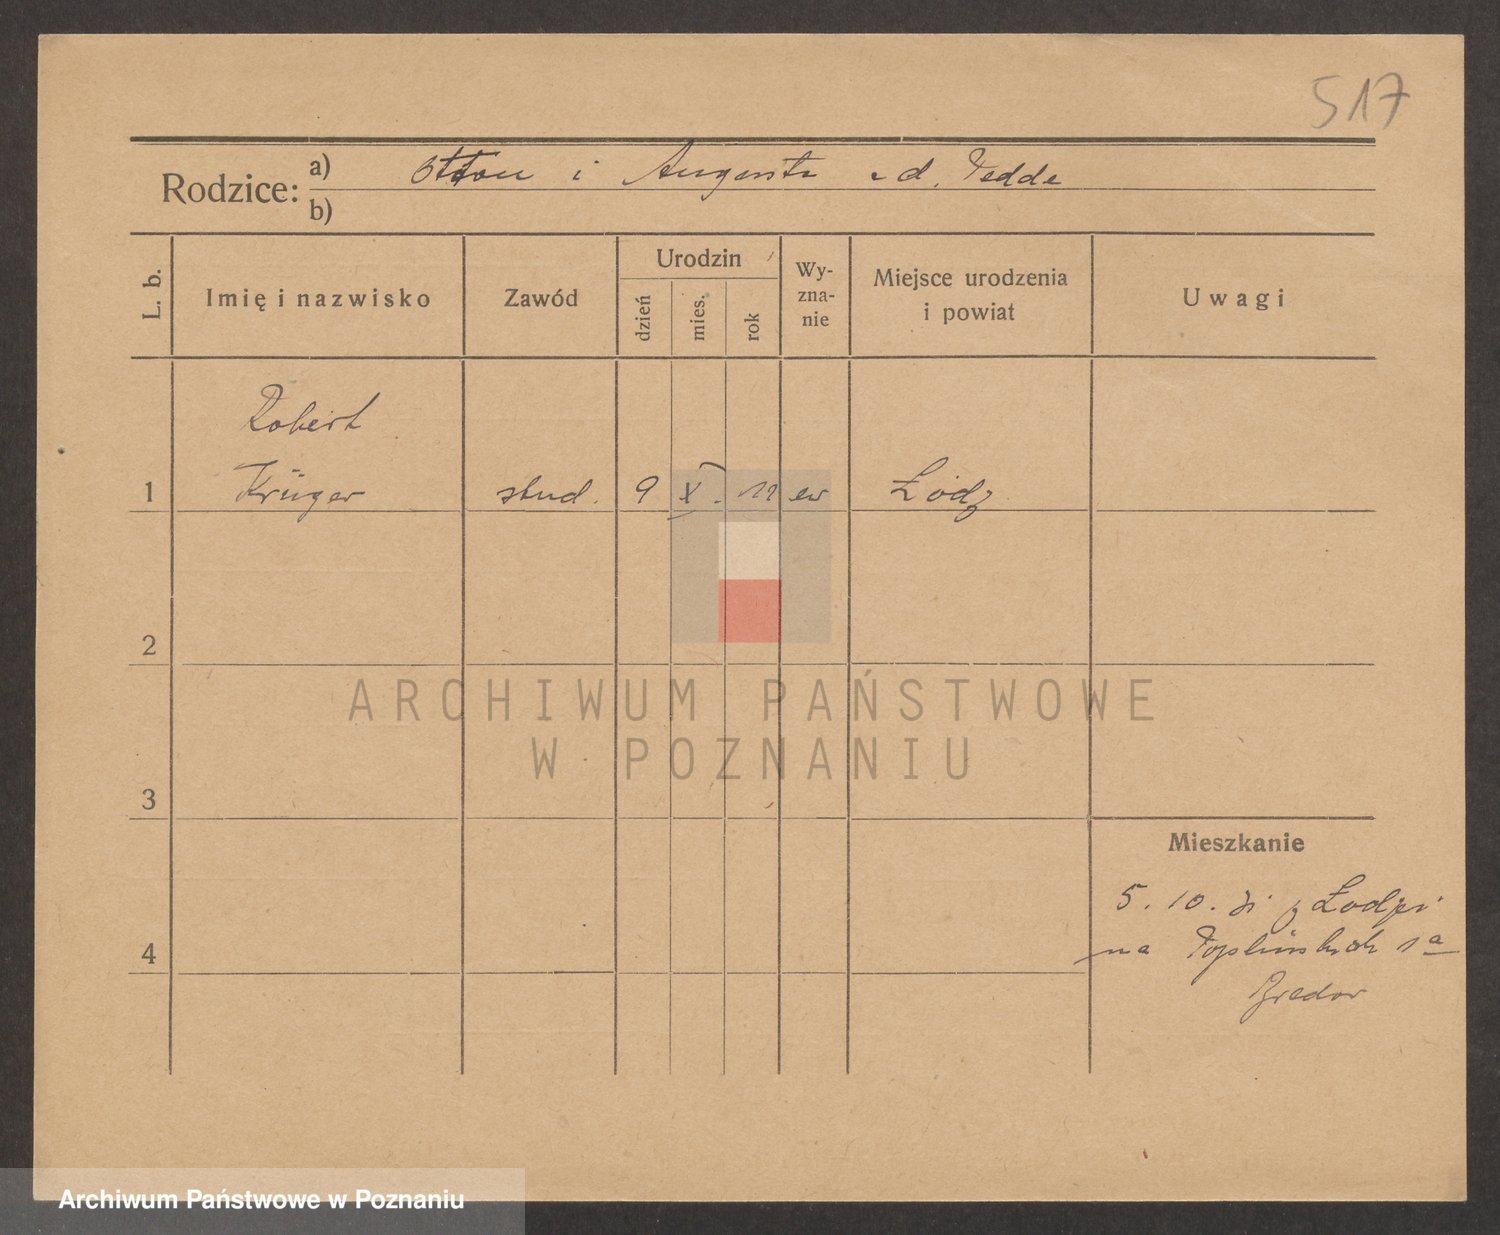 517
Rodzice: a) Otton i Augusta
b)
L. b.
Imię i nazwisko
Zawód
Urodzin
dzień
mies.
rok
Wy-
zna-
nie
Miejsce urodzenia
i powiat
Uwagi
Robert
1 Krüger stud. 9 X. ew Łódź
2
3
4
Mieszkanie
5. 10. 31 z Łodzi
na 1a
ARCHIWUM PAŃSTWOWE
W POZNANIU
Archiwum Państwowe w Poznaniu